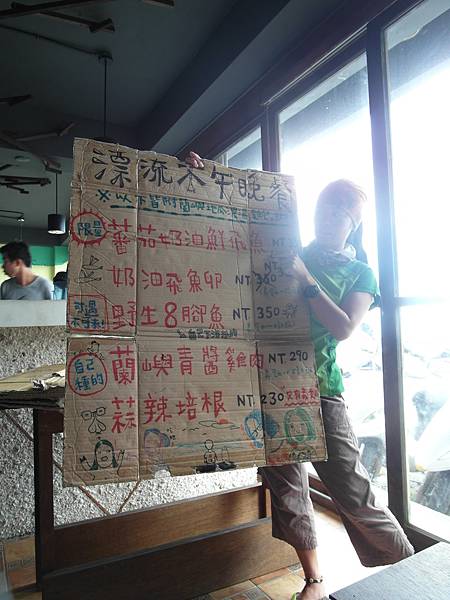 漂流木午晚餐
※以下皆附蘭嶼地瓜
限量 蕃茄奶油鮮飛魚 NT
奶油飛魚卵 NT 380
可遇不可求! 野生8腳魚 NT 350
自己種的 蘭嶼青醬雞肉 NT 290
蒜辣培根 NT. 230